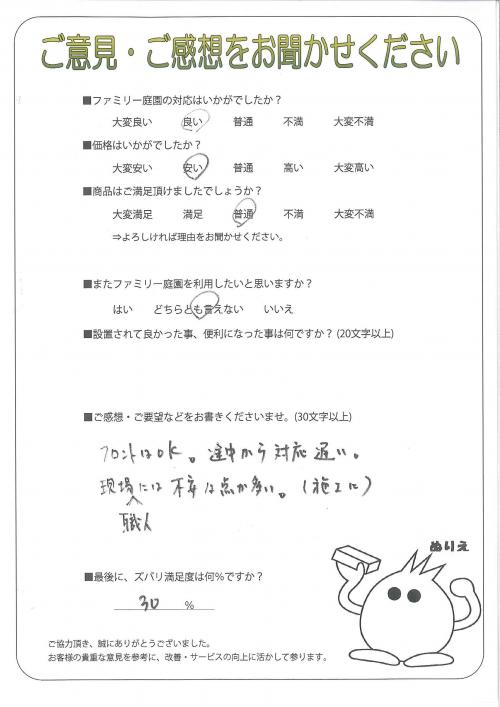 ご意見・ご感想をお聞かせください
■ファミリー庭園の対応はいかがでしたか？
大変良い 良い 普通 不満 大変不満
■価格はいかがでしたか？
大変安い 安い 普通 高い 大変高い
■商品はご満足頂けましたでしょうか？
大変満足 満足 普通 不満 大変不満
⇒よろしければ理由をお聞かせください。
■またファミリー庭園を利用したいと思いますか？
はい どちらとも言えない いいえ
■設置されて良かった事、便利になった事は何ですか？(20文字以上)
■ご感想・ご要望などをお書きくださいませ。(30文字以上)
フロントはOK。途中から対応遅い。
現場には不安な点が多い。(施工に)
職人
ぬりえ
■最後に、ズバリ満足度は何％ですか？
30 ％
ご協力頂き、誠にありがとうございました。
お客様の貴重な意見を参考に、改善・サービスの向上に活かして参ります。